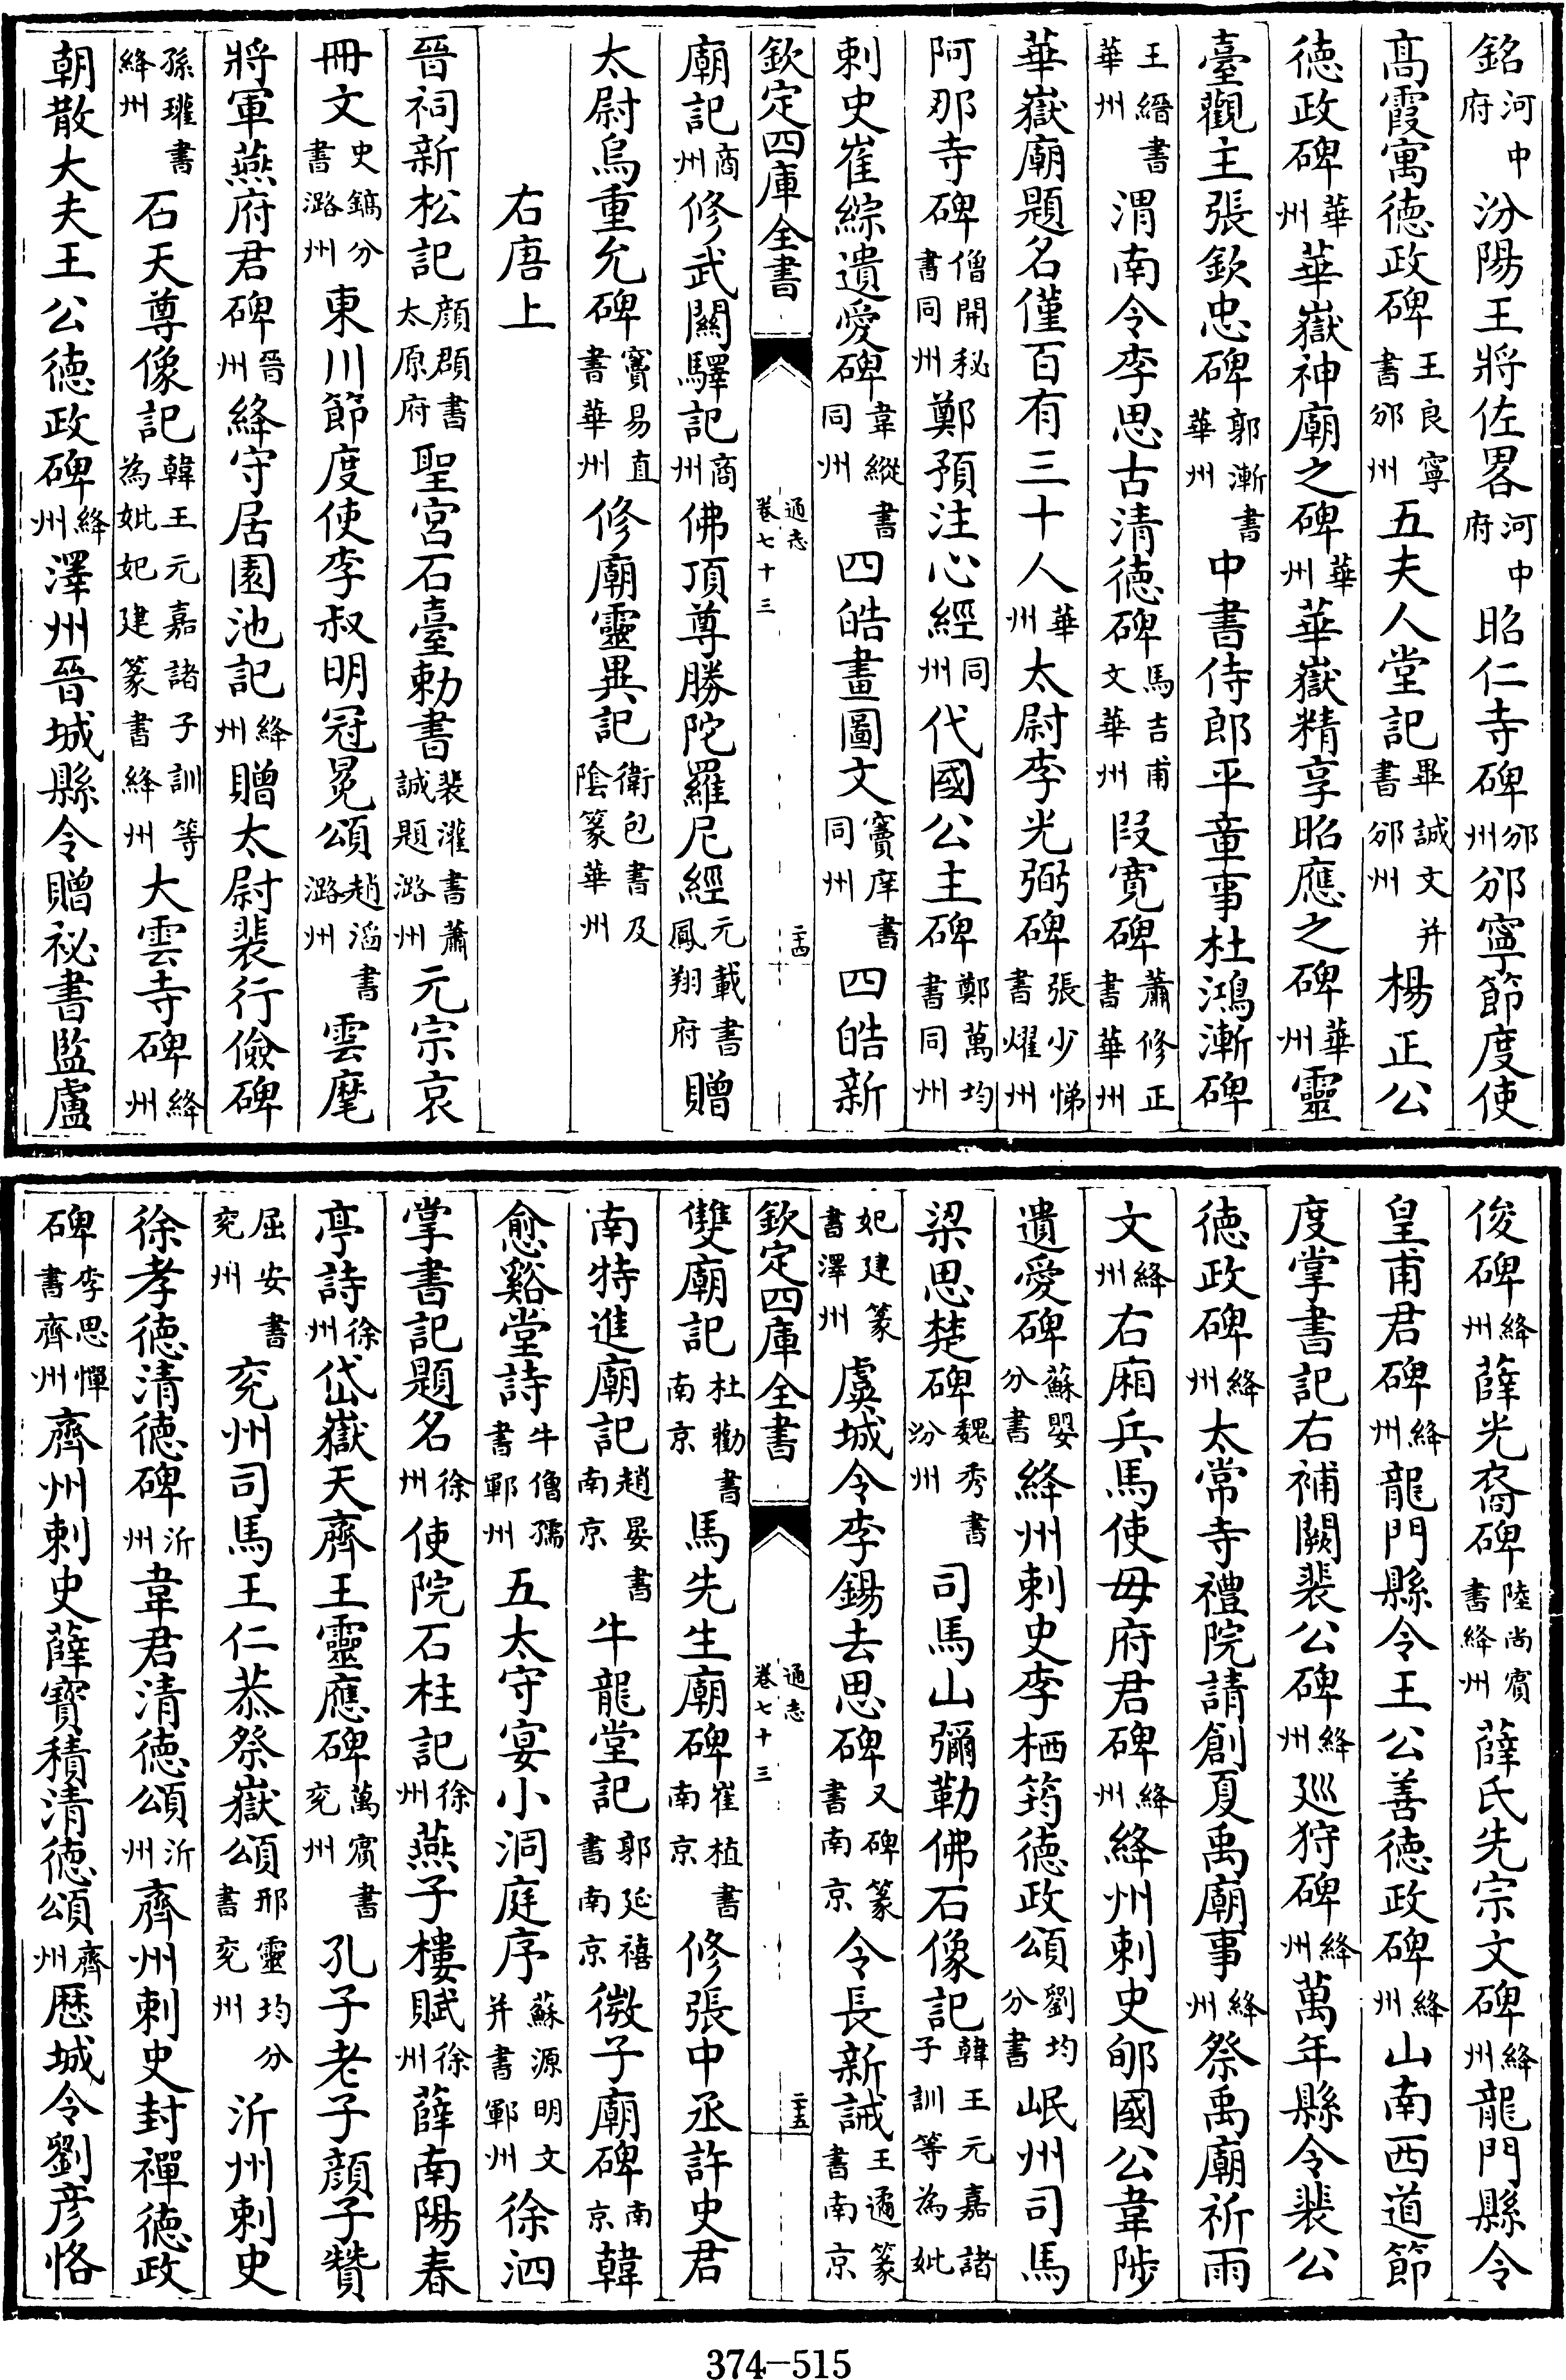 銘河中府汾陽王將佐畧河中府昭仁寺碑邠州邠寧節度使
髙霞寓徳政碑王良書邠寧州五夫人堂記畢誠文并書邠州楊正公
徳政碑華州華嶽神廟之碑華州華嶽精享昭應之碑華州靈
臺觀主張欽忠碑郭漸書華州中書侍郎平童事杜鴻漸碑
王縉書華州渭南令李思古清徳碑馬吉甫文華州段寛碑蕭修正書華州
華嶽廟題名僅百有三十人華州太尉李光弼碑張少悌書燿州
阿那寺碑僧開秘書同州鄭預注心經同州代國公主碑鄭萬均書同州
刺史崔綜遺愛碑韋縱書同州四皓畫圖文竇庠書同州四皓新
欽定四庫全書 通志卷七十三 二十四
廟記商州修武關驛記商州佛頂尊勝陀羅尼經元載書鳳翔府贈
太尉烏重允碑竇易直書華州修廟靈異記衛包書及隂篆華州
右唐上
晉祠新松記顔頵書太原府聖宮石臺勅書裴漼書蕭誠題潞州元宗哀
冊文史鎬分書潞州東川節度使李叔明冠冕頌趙滔書潞州雲麾
將軍燕府君碑晉州絳守居園池記絳州贈太尉裴行儉碑
孫璀書絳州石天尊像記韓王元嘉諸子訓等為妣妃建篆書絳州大雲寺碑絳州
朝散大夫王公徳政碑絳州澤州晉城縣令贈祕書監盧
俊碑絳州薛光裔碑陸尚賓書絳州薛氏先宗文碑絳州龍門縣令
皇甫君碑絳州龍門縣令王公善徳政碑絳州山南西道節
度掌書記右補闕裴公碑絳州廵狩碑絳州萬年縣令裴公
徳政碑絳州太常寺禮院請創夏禹廟事絳州祭禹廟祈雨
文絳州右廂兵馬使毋府君碑絳州絳州刺史郇國公韋陟
遺愛碑蘇嬰分書絳州刺史李栖筠徳政頌劉均分書岷州司馬
梁思楚碑魏秀書汾州司馬山彌勒佛石像記韓王元嘉諸子訓等為妣
妃建篆書澤州虞城令李錫去思碑又碑篆書南京令長新誡王遹篆書南京
欽定四庫全書 通志卷七十三 二十五
雙廟記杜勸書南京馬先生廟碑崔植書南京修張中丞許史君
南特進廟記趙晏書南京牛龍堂記郭延禧書南京微子廟碑南京韓
愈谿堂詩牛僧孺書鄆州五太守宴小洞庭序蘇源明文并書鄆州徐泗
掌書記題名徐州使院石柱記徐州燕子樓賦徐州薛南陽春
亭詩徐州岱嶽天齊王靈應碑萬賓書兖州孔子老子顔子贊
屈安書兖州兖州司馬王仁恭祭嶽頌邢靈均分書兖州沂州刺史
徐孝徳清徳碑沂州韋君清徳頌沂州齊州刺史封禪徳政
碑李思憚書齊州齊州刺史薛寳積清徳頌齊州歴城令劉彦恪
374-515